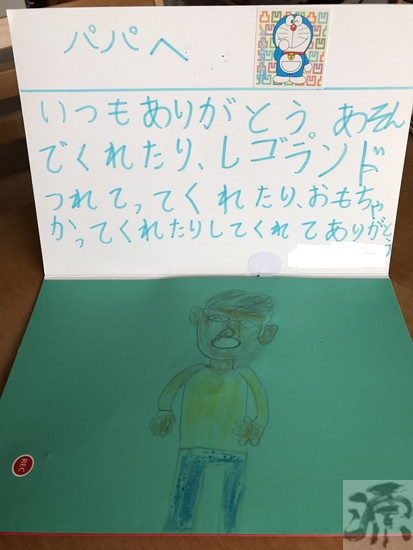 パパへ
いつもありがとう あそん
でくれたり、レゴランド
つれてってくれたり、おもちゃ
かってくれたりしてくれてありがとう
REC
源